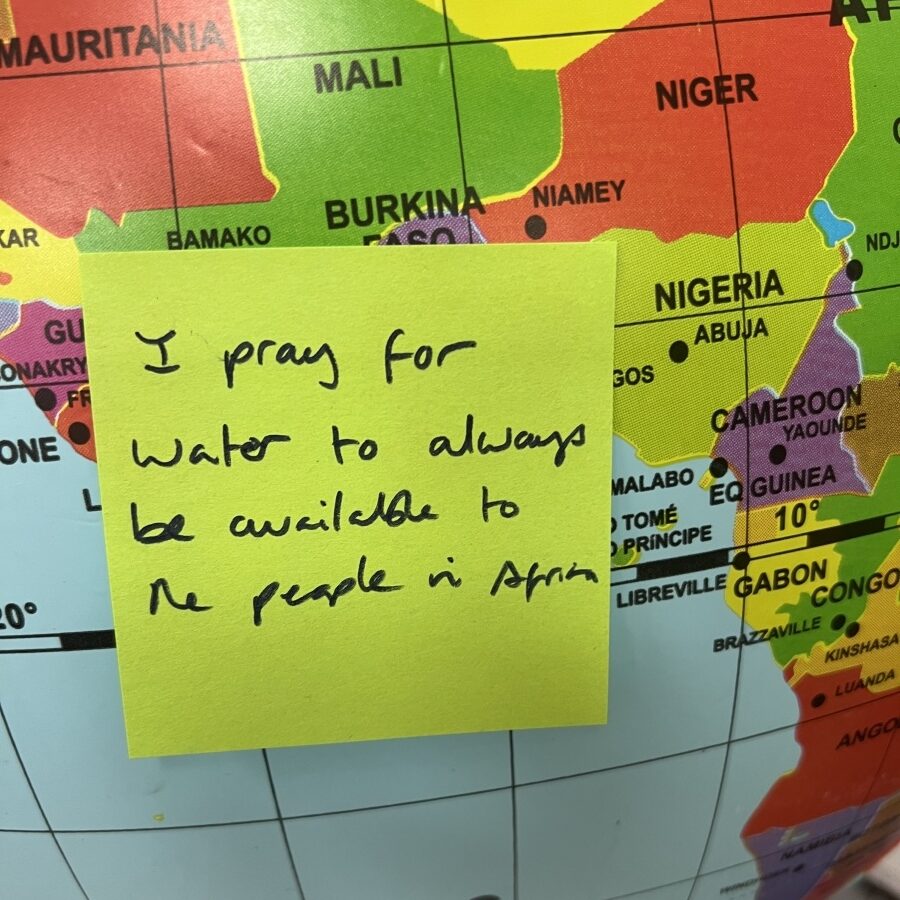 AF
MAURITANIA
MALI
NIGER
BURKINA
FASO
NIAMEY
KAR
BAMAKO
NDJ
NIGERIA
ABUJA
GOS
GU
ONAKRY
FR
ONE
L
CAMEROON
YAOUNDE
MALABO
EQ GUINEA
TOMÉ
PRÍNCIPE
10°
LIBREVILLE
GABON
CONGO
BRAZZAVILLE
KINSHASA
LUANDA
ANGO
NAMIBIA
20°
I pray for
water to always
be available to
the people in Africa